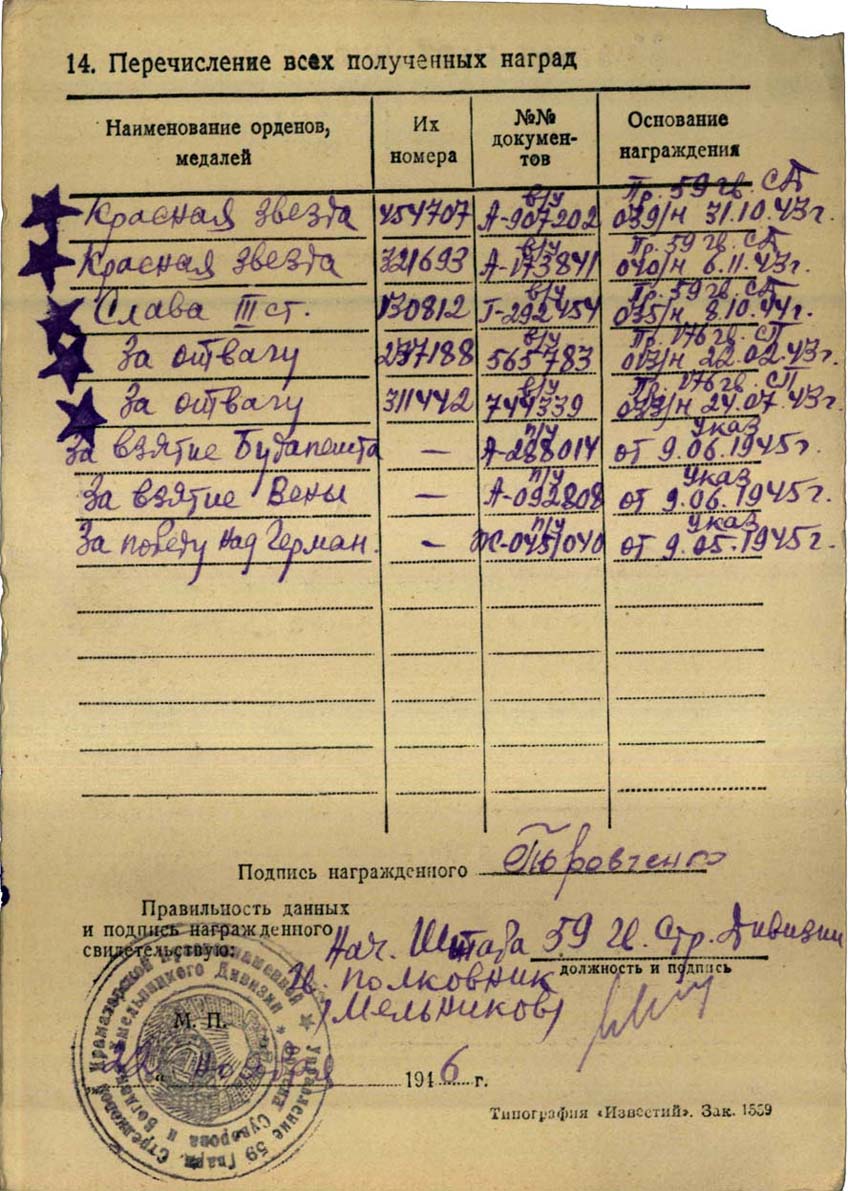 14. Перечисление всех полученных наград
Наименование орденов, медалей Их номера №№ докумен-тов Основание награждения
в/у Пр. 59 гв. СД
Красная звезда 454707 А-907202 039/н 31.10.43г.
в/у Пр. 59 гв. СД
Красная звезда 321693 А-173841 040/н 6.11.43г.
в/у Пр. 59 гв. СД
Слава III ст. 130812 Г-292454 035/н 8.10.44г.
в/у Пр. 176 гв. СП
За отвагу 237188 565783 013/н 22.02.43г.
в/у Пр. 176 гв. СП
За отвагу 311442 744339 033/н 24.07.43г.
п/у Указ
За взятие Будапешта — А-288014 от 9.06.1945г.
п/у Указ
За взятие Вены — А-092808 от 9.06.1945г.
п/у Указ
За победу над Герман. — Ж-0451040 от 9.05.1945г.
Подпись награжденного
Правильность данных
и подпись награжденного
свидетельствую:
Нач. Штаба 59 гв. Стр. Дивизии
должность и подпись
гв. полковник
/Мельников/
М. П.
"22" ноября 1946 г.
Управление 59 Гвард. Стрелковой Краматорской Краснознаменной
Ордена Суворова и Богдана Хмельницкого Дивизии
Типография «Известий». Зак. 1559